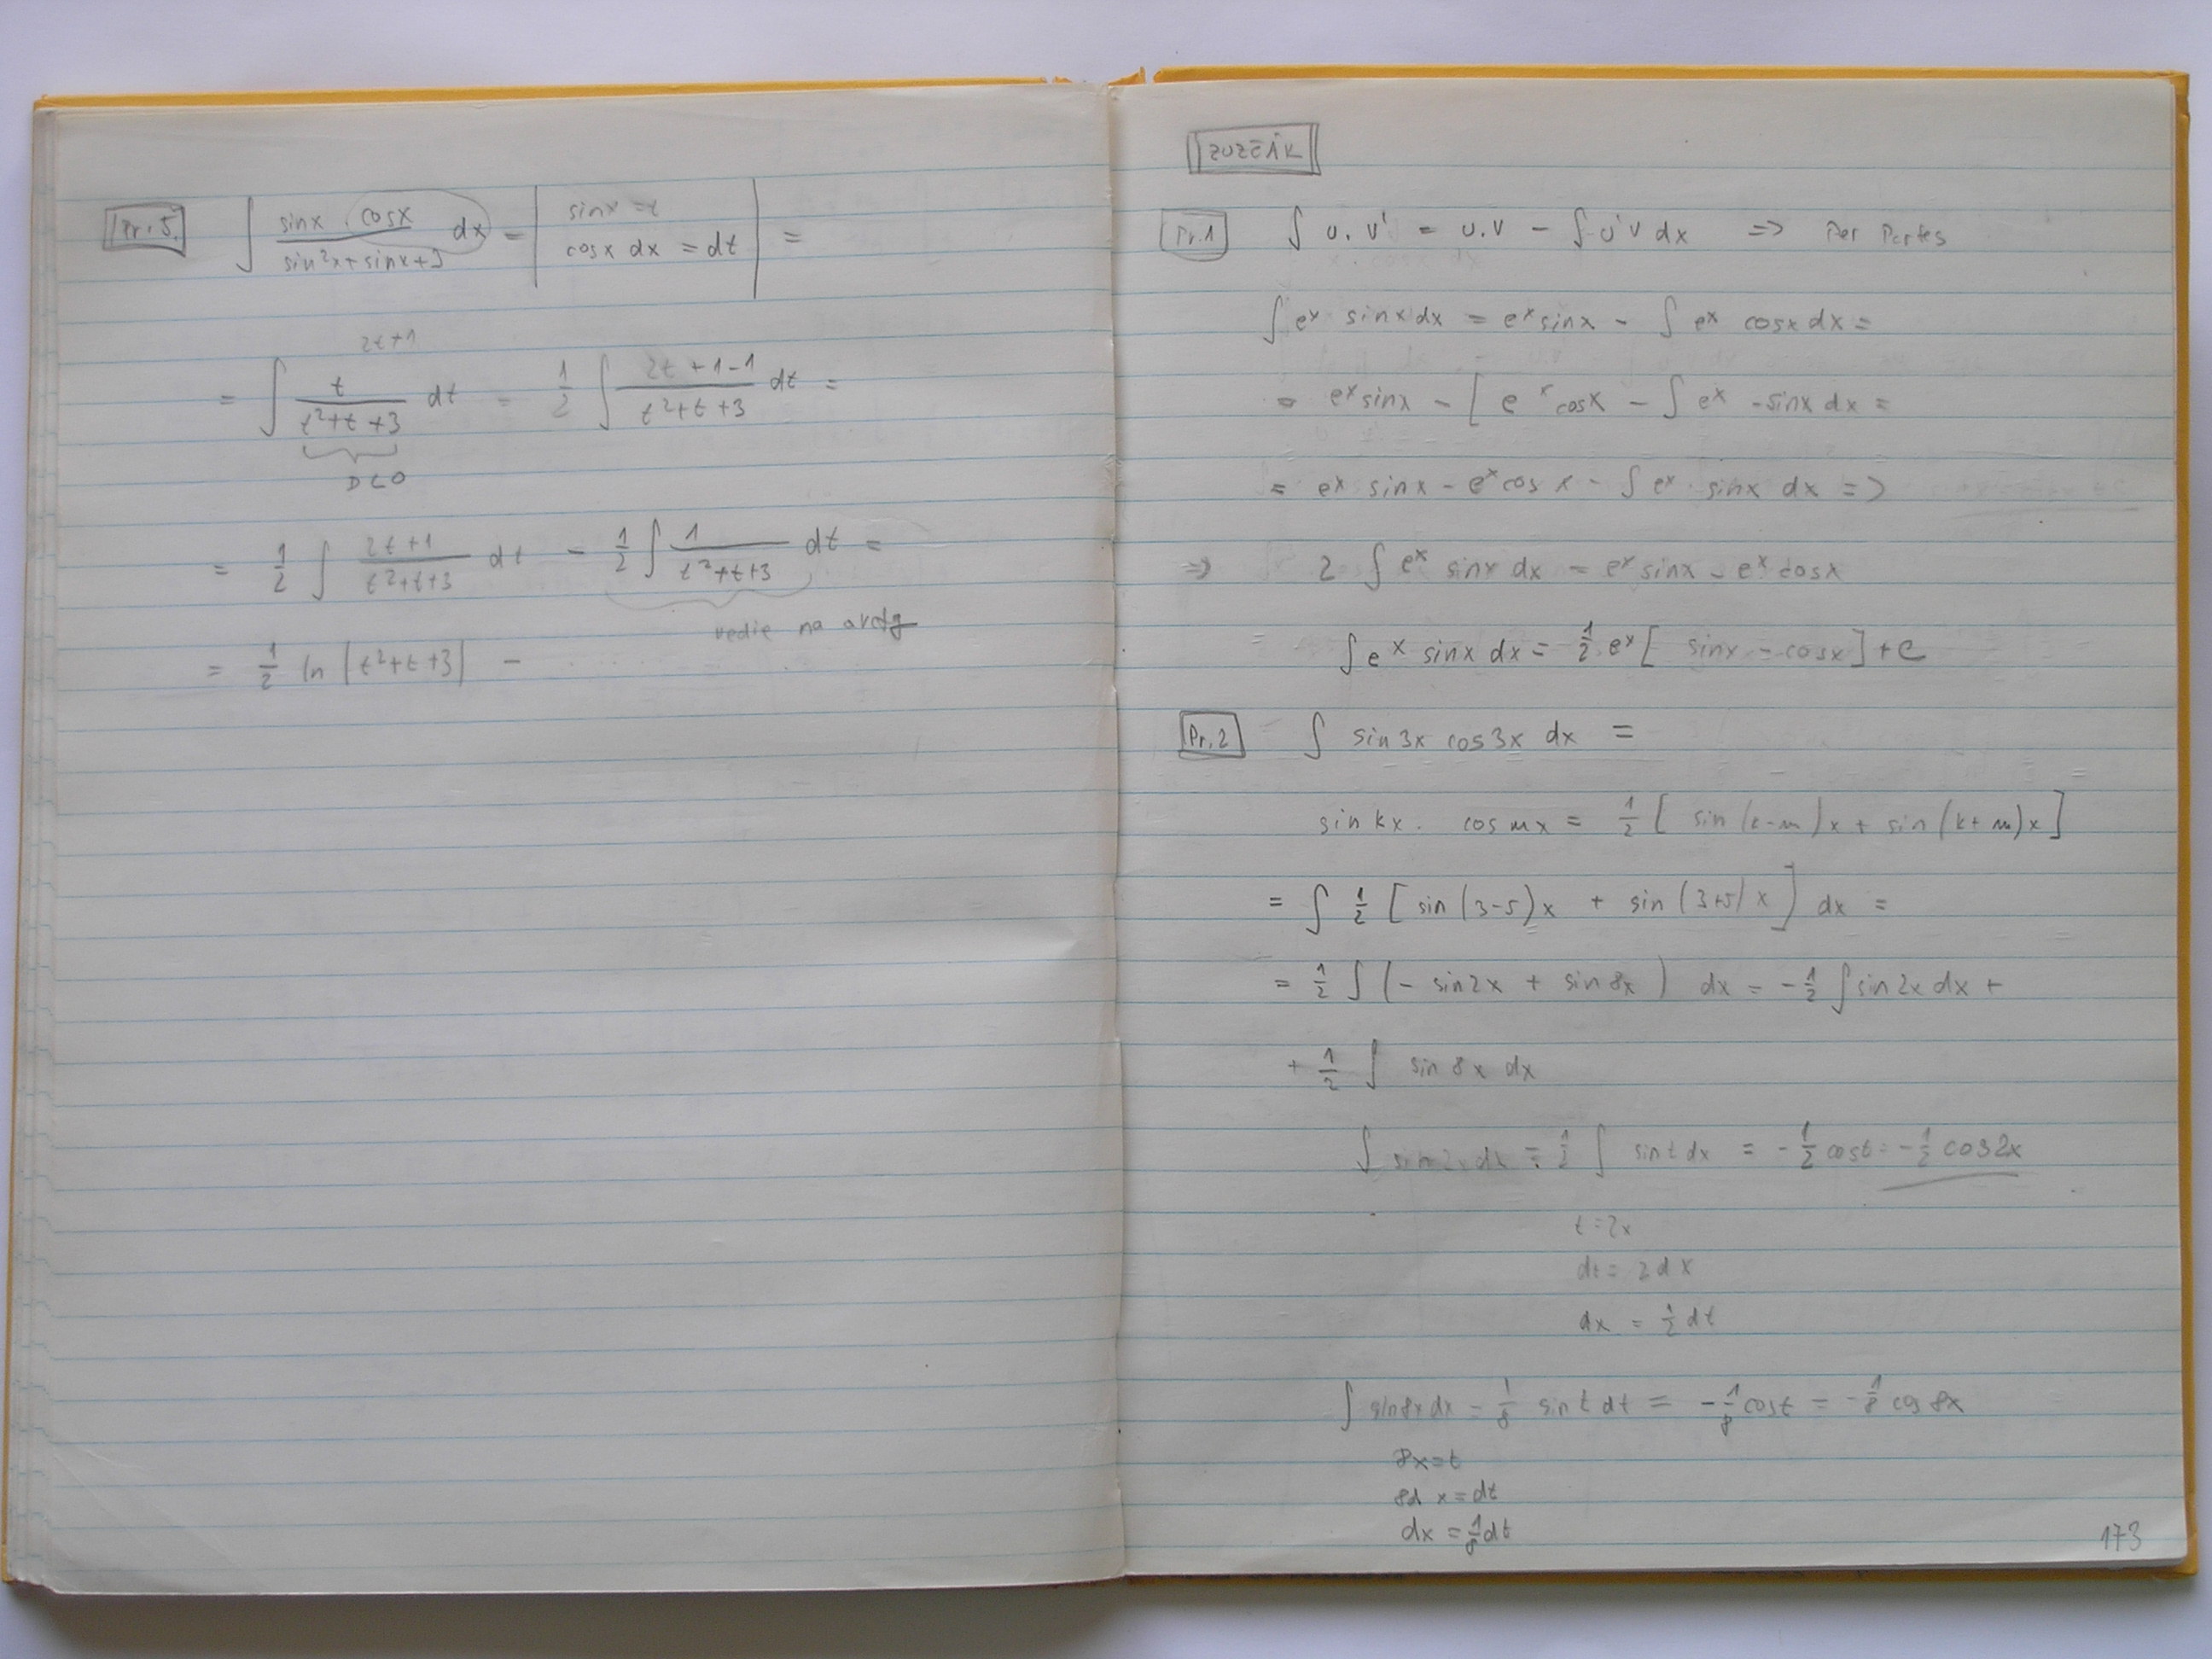 Pr. 5. ∫ sinx cosx / sin²x+sinx+3 dx = | sinx = t
cosx dx = dt | =
2t+1
= ∫ t / t²+t+3 dt = 1/2 ∫ 2t+1-1 / t²+t+3 dt =
D<0
= 1/2 ∫ 2t+1 / t²+t+3 dt - 1/2 ∫ 1 / t²+t+3 dt =
vedie na arctg
= 1/2 ln |t²+t+3| -
Pr.1 ∫ u. v' = u.v - ∫ u'v dx => Per Partes
∫ eˣ sinx dx = eˣ sinx - ∫ eˣ cosx dx =
= eˣ sinx - [ eˣ cosx - ∫ eˣ -sinx dx =
= eˣ sinx - eˣ cos x - ∫ eˣ · sinx dx =>
=> 2 ∫ eˣ sinx dx = eˣ sinx - eˣ cosx
∫ eˣ sinx dx = 1/2 eˣ [ sinx - cosx ] + C
Pr.2 ∫ sin 3x cos 3x dx =
sin kx . cos mx = 1/2 [ sin (k-m)x + sin (k+m)x ]
= ∫ 1/2 [ sin (3-5)x + sin (3+5)x ] dx =
= 1/2 ∫ (- sin2x + sin 8x ) dx = - 1/2 ∫ sin 2x dx +
+ 1/2 ∫ sin 8x dx
∫ sin 2x dx = 1/2 ∫ sin t dx = - 1/2 cost = - 1/2 cos2x
t = 2x
dt = 2dx
dx = 1/2 dt
∫ sin8x dx = 1/8 sin t dt = - 1/8 cost = - 1/8 cos 8x
8x=t
8d x = dt
dx = 1/8 dt
173